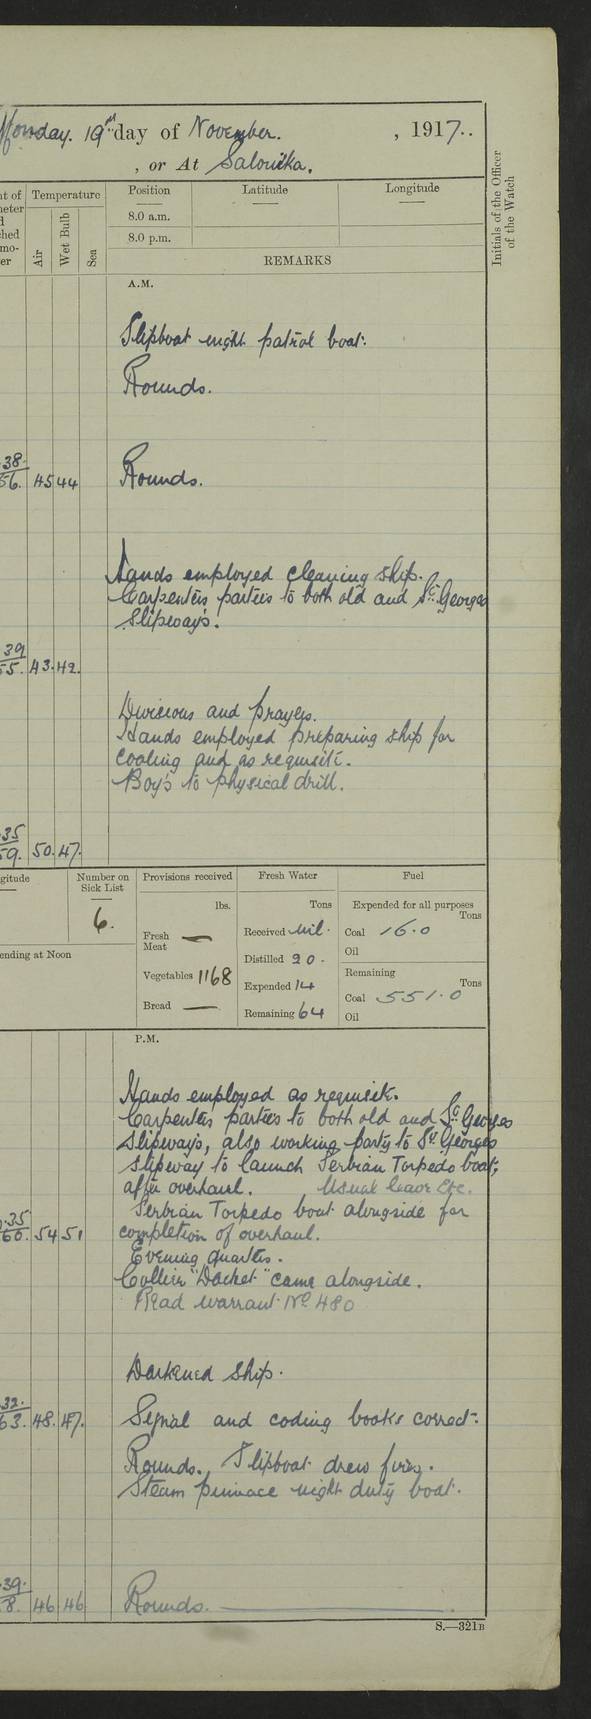 Monday. 19th day of November. , 1917..
, or At Salonika.
Temperature
Position Latitude Longitude
Air Wet Bulb Sea
8.0 a.m.
8.0 p.m.
Initials of the Officer
of the Watch
REMARKS
A.M.
Slipboat night patrol boat.
Rounds.
38.
56. 45 44 Rounds.
Hands employed cleaning ship.
Carpenters parties to both old and St. Georges
Slipways.
39
55. 43. 42.
Divisions and prayers.
Hands employed preparing ship for
coaling and as requisite.
Boy's to physical drill.
35
59. 50. 47.
gitude Number on Sick List Provisions received Fresh Water Fuel
6.
lbs. Tons Expended for all purposes
Tons
Fresh Meat — Received nil. Coal 16.0
Distilled 20. Oil
ending at Noon
Vegetables 1168 Expended 14 Remaining
Tons
Bread — Remaining 64 Coal 551.0
Oil
P.M.
Hands employed as requisite.
Carpenters parties to both old and St. Georges
Slipways, also working party to St. Georges
slipway to launch Serbian Torpedo boat,
after overhaul. Usual leave Etc.
Serbian Torpedo boat alongside for
35
60. 54 51 completion of overhaul.
Evening quarters.
Collier "Dachet" came alongside.
Read warrant No. 480
Darkened ship.
32.
63. 48. 47. Signal and coding books correct.
Rounds. Slipboat drew fires.
Steam pinnace night duty boat.
39.
8. 46 46 Rounds.
S.—321B